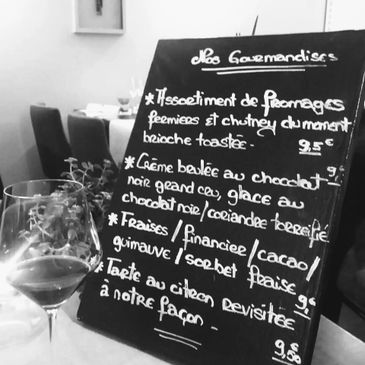 Nos Gourmandises
* Assortiment de fromages
fermiers et chutney du moment
brioche toastée - 9,5€
* Crème brulée au chocolat 9,€
noir grand cru, glace au
chocolat noir/coriandre torréfié
* Fraises/financier/cacao/
guimauve/sorbet fraise 9,€
* Tarte au citron revisitée
à notre façon -
9,50€